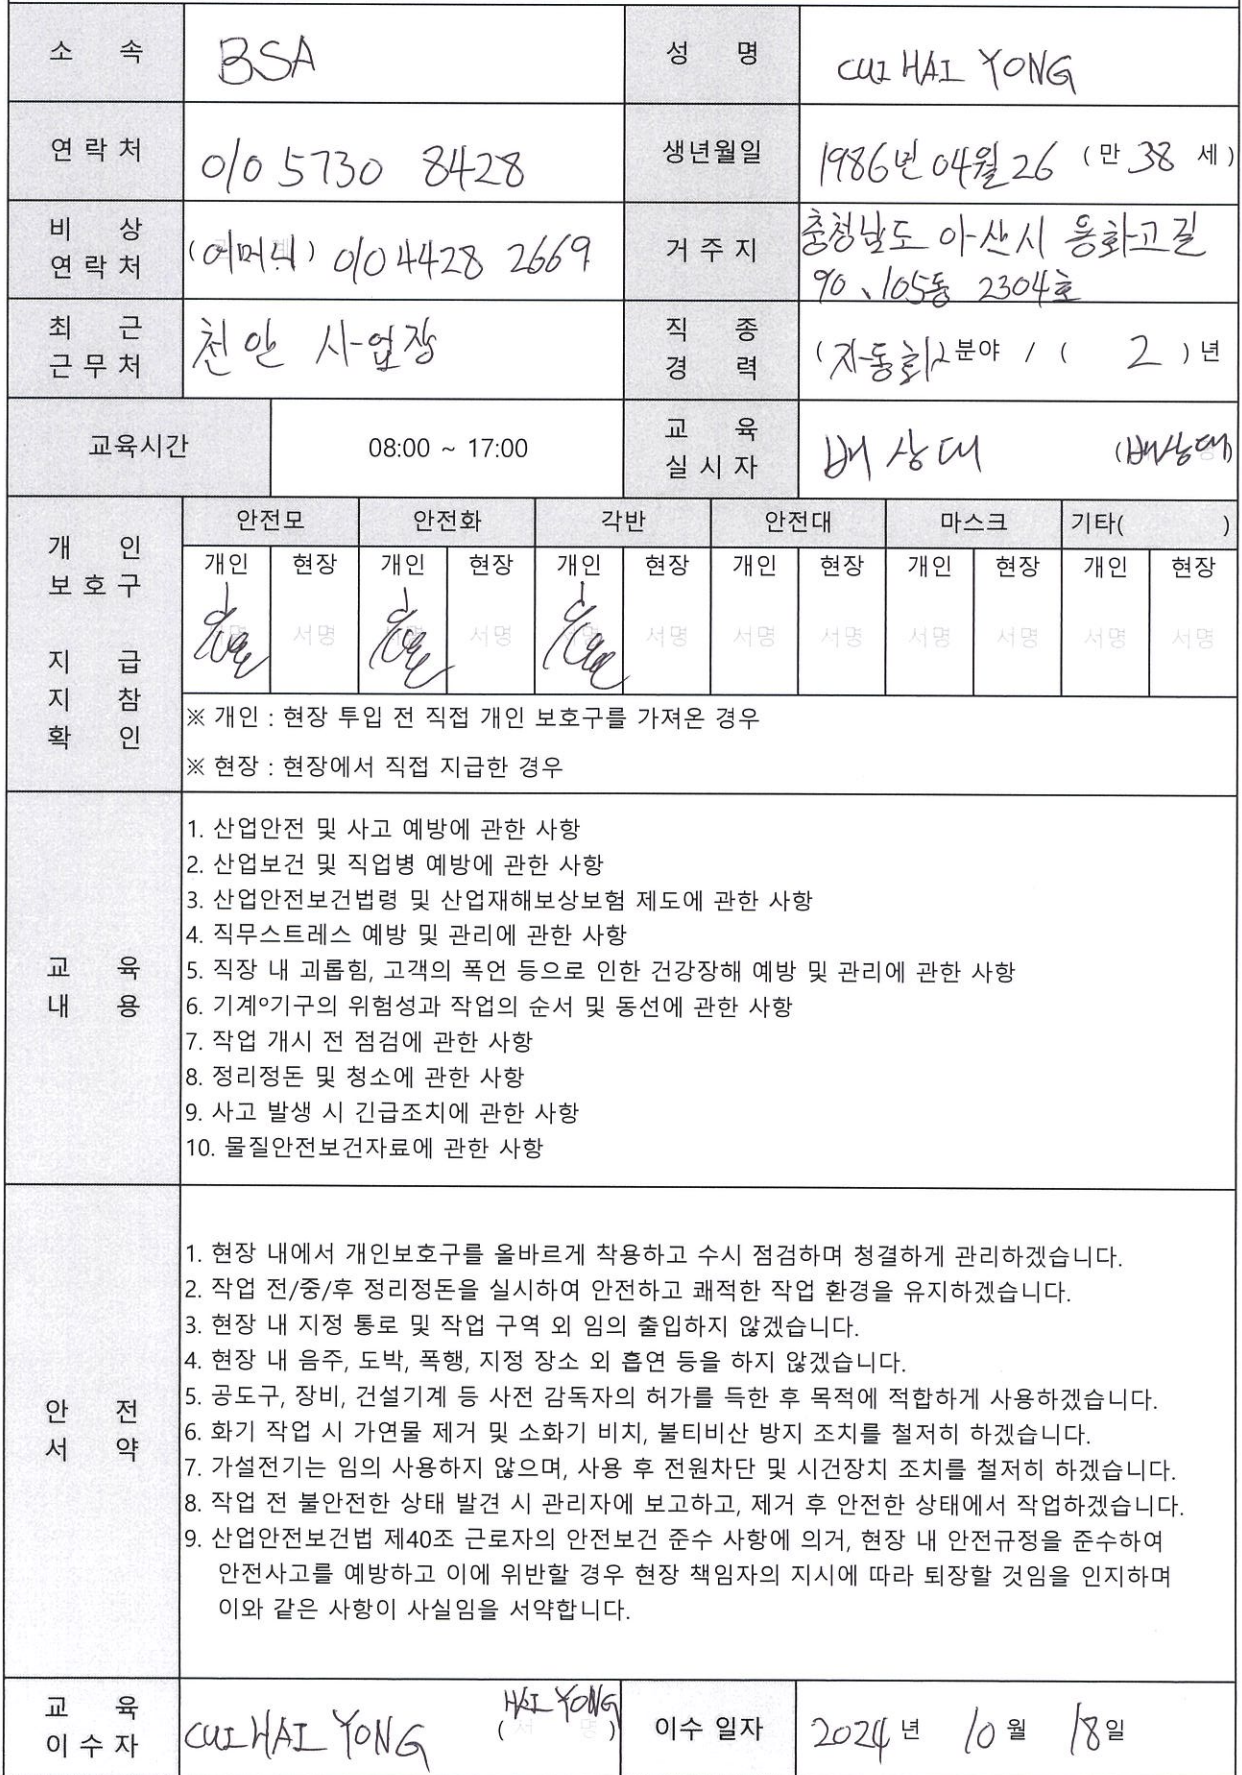 소 속 BSA 성 명 CUI HAI YONG
연 락 처 010 5730 8428 생년월일 1986년 04월 26 ( 만 38 세 )
비 상 연 락 처 (어머니) 010 4428 2669 거 주 지 충청남도 아산시 용화고길
90、105동 2304호
최 근 근 무 처 천안 사업장 직 종 경 력 ( 자동화 분야 / ( 2 ) 년
교육시간 08:00 ~ 17:00 교 육 실 시 자 배상대 (배상대)
개 인 보 호 구 지 급 지 참 확 인
안전모 안전화 각반 안전대 마스크 기타( )
개인 현장 개인 현장 개인 현장 개인 현장 개인 현장 개인 현장
서명 서명 서명 서명 서명 서명 서명 서명 서명
※ 개인 : 현장 투입 전 직접 개인 보호구를 가져온 경우
※ 현장 : 현장에서 직접 지급한 경우
교 육 내 용
1. 산업안전 및 사고 예방에 관한 사항
2. 산업보건 및 직업병 예방에 관한 사항
3. 산업안전보건법령 및 산업재해보상보험 제도에 관한 사항
4. 직무스트레스 예방 및 관리에 관한 사항
5. 직장 내 괴롭힘, 고객의 폭언 등으로 인한 건강장해 예방 및 관리에 관한 사항
6. 기계º기구의 위험성과 작업의 순서 및 동선에 관한 사항
7. 작업 개시 전 점검에 관한 사항
8. 정리정돈 및 청소에 관한 사항
9. 사고 발생 시 긴급조치에 관한 사항
10. 물질안전보건자료에 관한 사항
안 전 서 약
1. 현장 내에서 개인보호구를 올바르게 착용하고 수시 점검하며 청결하게 관리하겠습니다.
2. 작업 전/중/후 정리정돈을 실시하여 안전하고 쾌적한 작업 환경을 유지하겠습니다.
3. 현장 내 지정 통로 및 작업 구역 외 임의 출입하지 않겠습니다.
4. 현장 내 음주, 도박, 폭행, 지정 장소 외 흡연 등을 하지 않겠습니다.
5. 공도구, 장비, 건설기계 등 사전 감독자의 허가를 득한 후 목적에 적합하게 사용하겠습니다.
6. 화기 작업 시 가연물 제거 및 소화기 비치, 불티비산 방지 조치를 철저히 하겠습니다.
7. 가설전기는 임의 사용하지 않으며, 사용 후 전원차단 및 시건장치 조치를 철저히 하겠습니다.
8. 작업 전 불안전한 상태 발견 시 관리자에 보고하고, 제거 후 안전한 상태에서 작업하겠습니다.
9. 산업안전보건법 제40조 근로자의 안전보건 준수 사항에 의거, 현장 내 안전규정을 준수하여
안전사고를 예방하고 이에 위반할 경우 현장 책임자의 지시에 따라 퇴장할 것임을 인지하며
이와 같은 사항이 사실임을 서약합니다.
교 육 이 수 자 CUI HAI YONG ( HAI YONG ) 이수 일자 2024 년 10 월 18 일